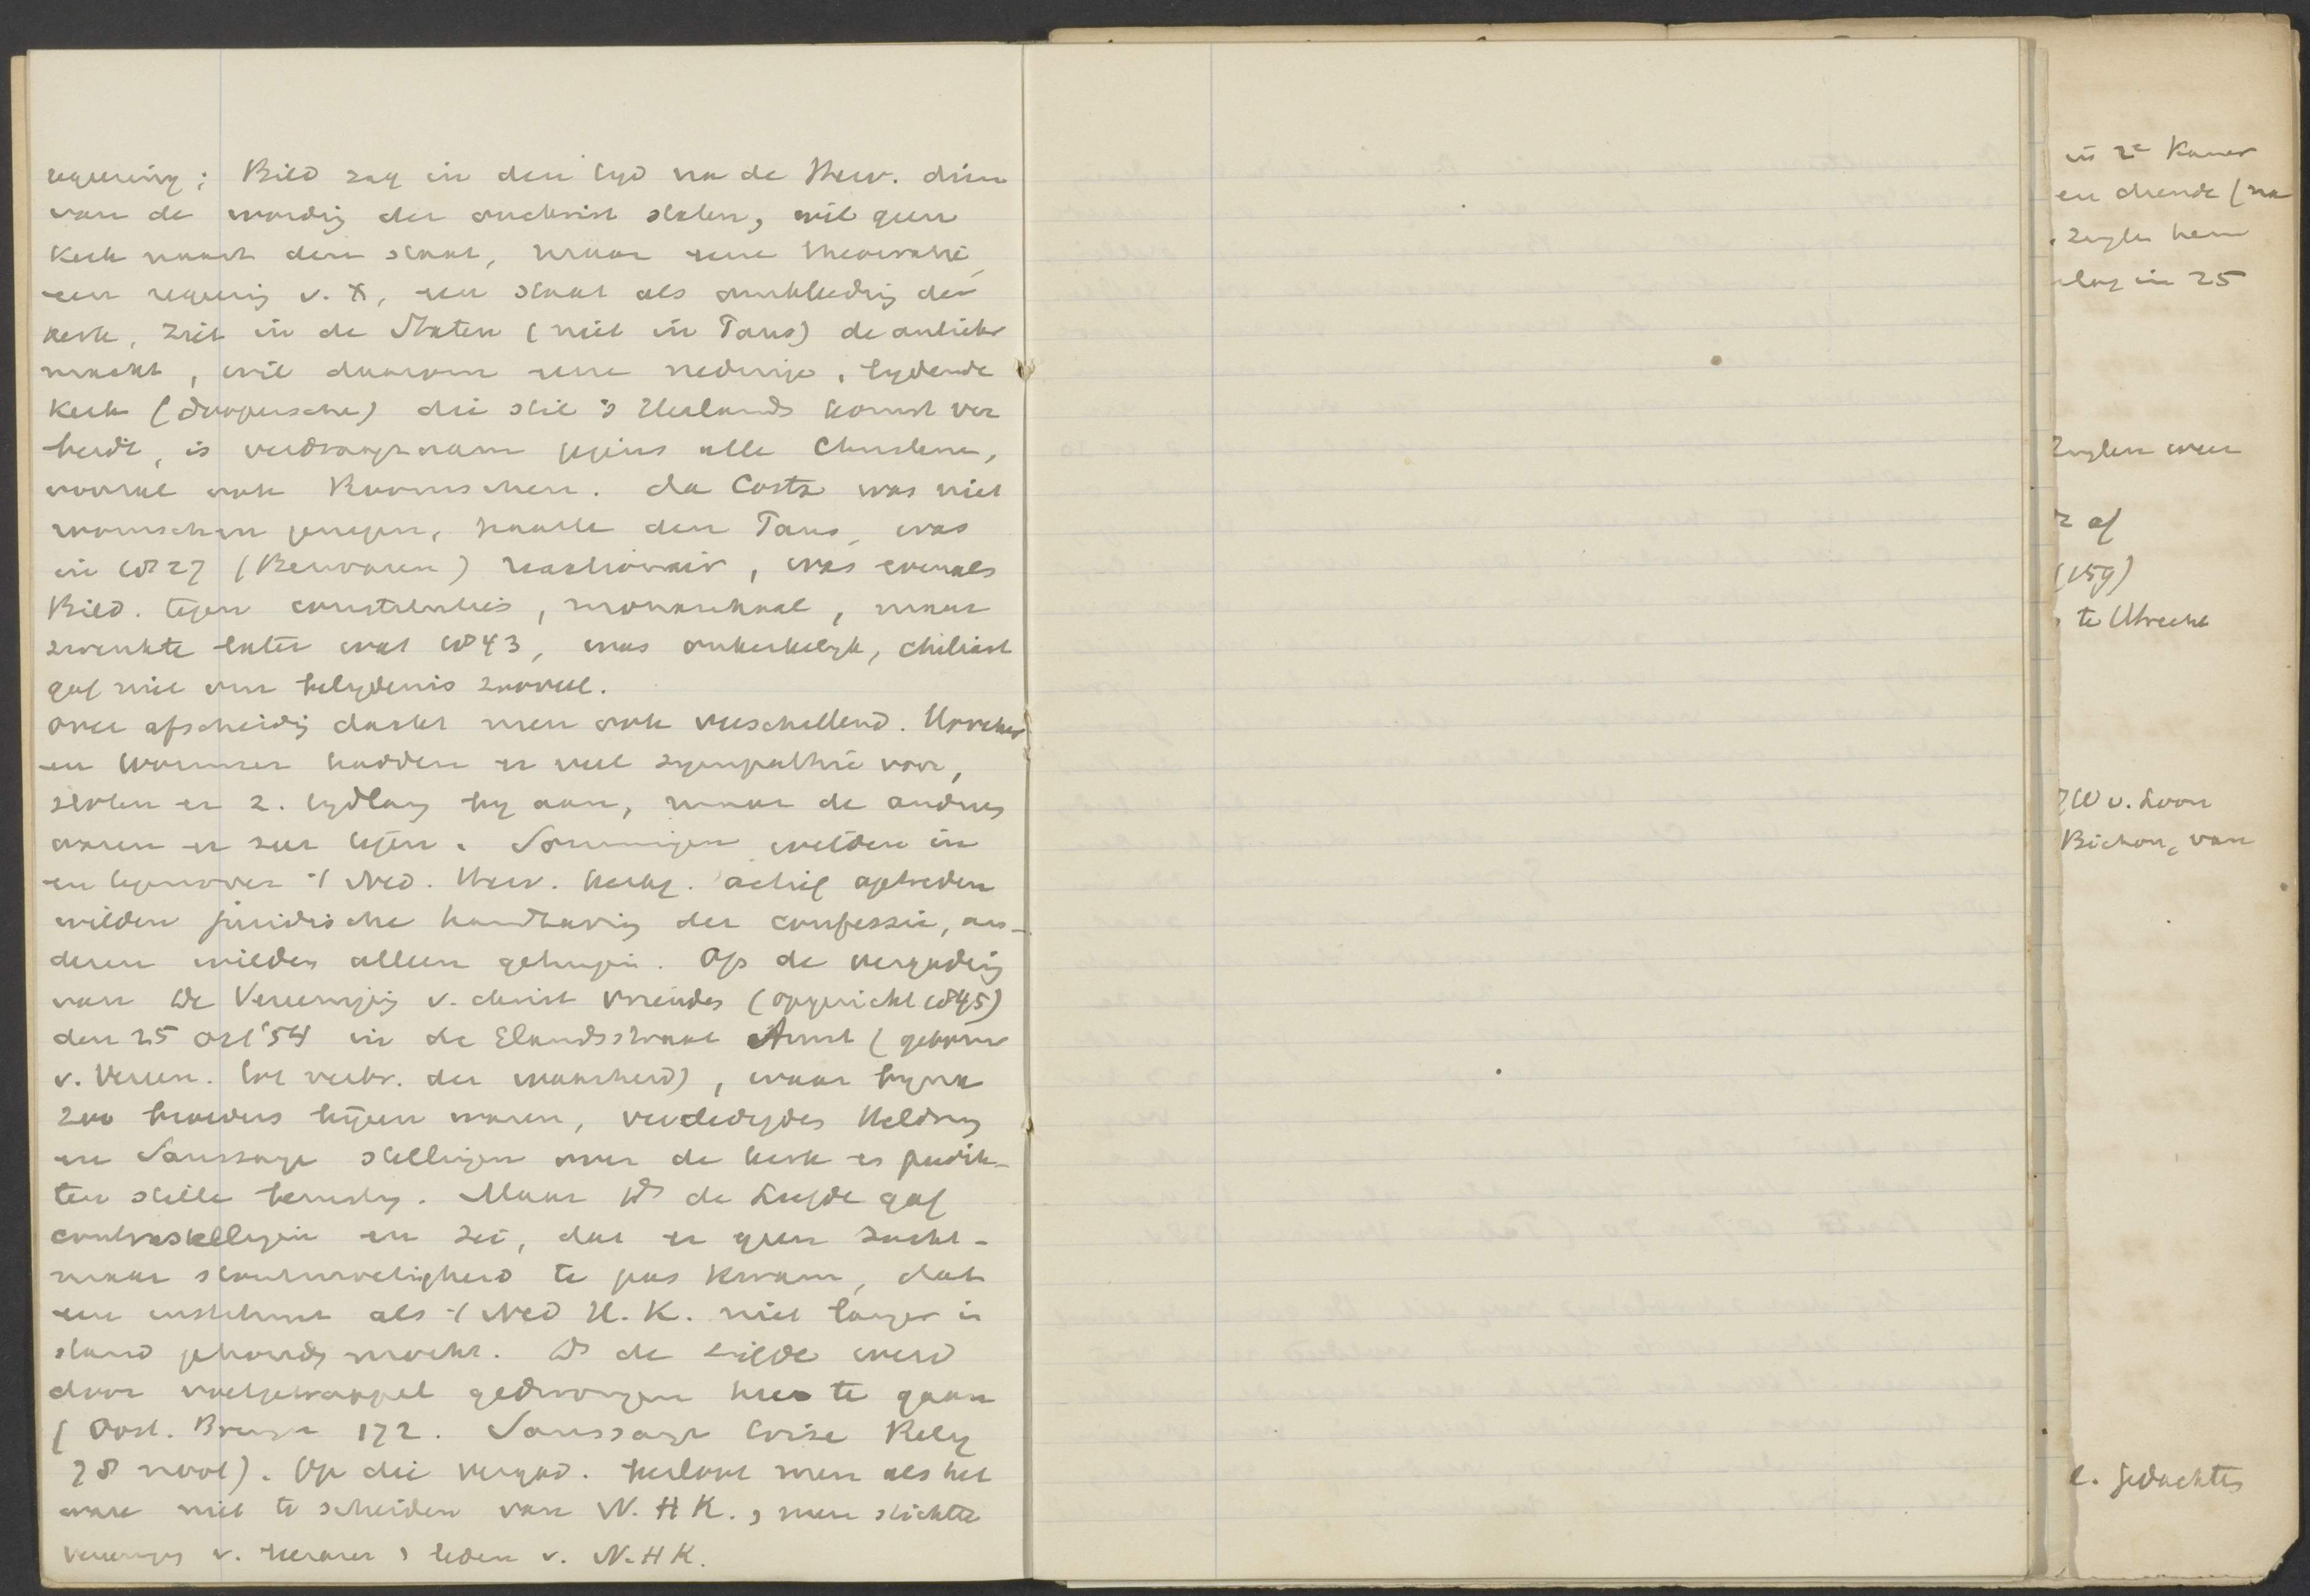 regeering; Bild zag in den tyd na de Herv. dien
van de wording der antichrist. staten, wil geen
kerk naast den staat, maar eene theocratie,
een regeering v. X, een staat als omkleeding der
kerk, ziet in de Staten (niet in Paus) de antichr
macht, wil daarom eene nederige, lydende
kerk (doopersche) die stil 's Heilands komst ver
beidt, is verdraagzaam jegens alle Christenen,
vooral ook Roomschen. da Costa was niet
roomschen genegen, haatte den Paus, was
in 1827 (Bezwaren) reactionair, was evenals
Bild. tegen constitutie, monarchaal, maar
zwenkte later wat 1843, was onkerkelyk, chiliast
gaf niet om belydenis zooveel.
over afscheiding dacht men ook verschillend.
en Wormser hadden er veel sympathie voor,
sloten er z. tydlang by aan, maar de andres
waren er zeer tegen. Sommigen wilden in
en tegenover 't Ned. Herv. Kerkg. actief optreden
wilden juridische handhaving der confessie, an-
deren wilden alleen getuigen. Op de vergadering
van de Vereeniging v. christ vrienden (opgericht 1845)
den 25 Oct '54 in de Elandsstraat Amst (gebouw
v. Vereen. tot verbr. der waarheid), waar byna
200 broeders byeen waren, verdedigdes Heldring
en Saussaye stellingen over de kerk es predik-
ten stille berusting. Maar Ds de Liefde gaf
contrastellingen en zei, dat er geen zacht-
maar stoutmoedigheid te pas kwam, dat
een instituut als 't Ned H. K. niet langer in
stand gehouden mocht. Ds de Liefde werd
door voetgetrappel gedwongen heen te gaan
(Oost. Bruyn 172. Saussaye Crise Relig
78 noot). Op die vergad. besloot men als het
ware niet te scheiden van N. H K., men stichtte
v. leden v. N. H K.
in 2e Kamer
en diende (na
hem
in 25

r af
(159)
te Utrecht
JW v. Loon
Bichon, van
e. gedachtes